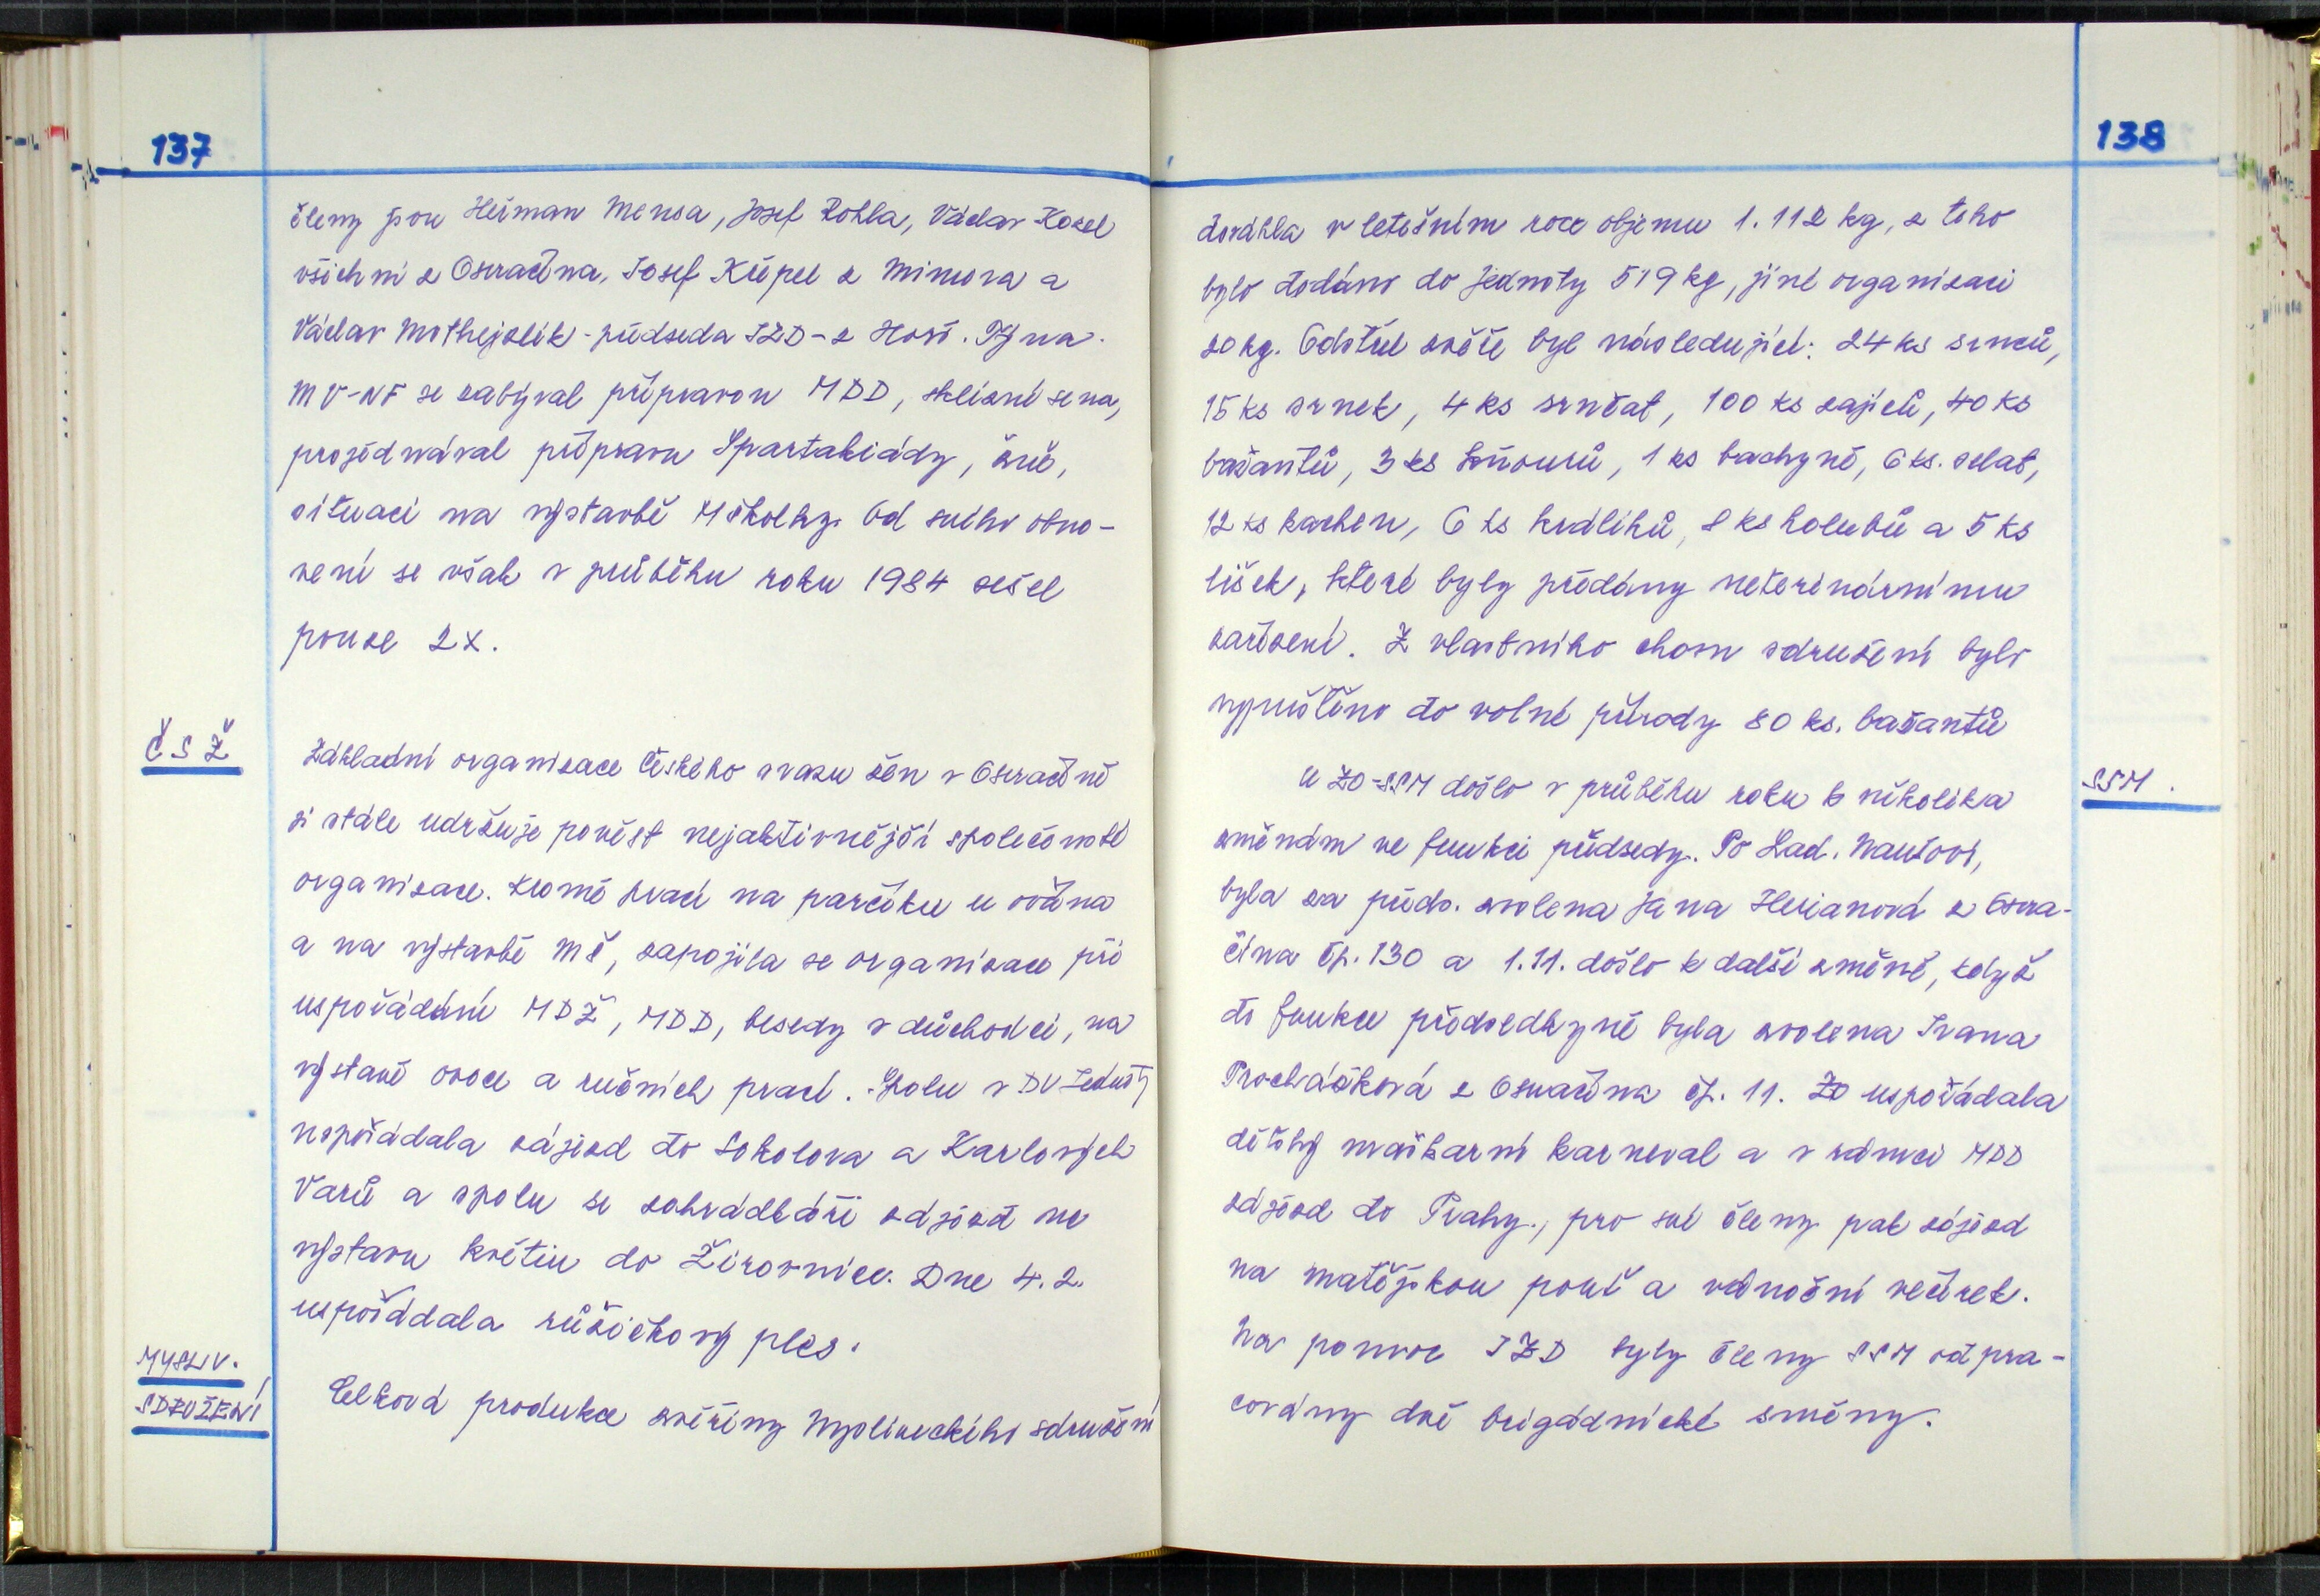 137
členy jsou Heřman Mensa, Josef Rohla, Václav Kozel
všichni z Osvračína, Josef Küpel z Mimova a
Václav Mothejzlík - předseda JZD - z Host. Týna.
MV-NF se zabýval přípravou MDD, sklizní sena,
projednával přípravu Spartakiády, žně,
situaci na výstavbě M školky. Od svého obno-
vení se však v průběhu roku 1984 sešel
pouze 2x.
ČSŽ
Základní organizace Českého svazu žen v Osvračíně
si stále udržuje pověst nejaktivnější společenské
organizace. Kromě prací na parčíku u
a na výstavbě MŠ, zapojila se organizace při
uspořádání MDŽ, MDD, besedy s důchodci, na
výstavě ovoce a ručních prací. Spolu s DV Jednoty
uspořádala zájezd do Sokolova a Karlových
Varů a spolu se zahrádkáři zájezd na
výstavu květin do Žirovnice. Dne 4.2.
uspořádala růžičkový ples.
MYSLIV.
SDRUŽENÍ
Celková produkce zvěřiny Mysliveckého sdružení
138
dosáhla v letošním roce objemu 1.112 kg, z toho
bylo dodáno do Jednoty 519 kg, jiné organisaci
20 kg. Odstřel zvěře byl následující: 24 ks srnců,
15 ks srnek, 4 ks srnčat, 100 ks zajíců, 40 ks
bažantů, 3 ks kňourů, 1 ks bachyně, 6 ks. selat,
12 ks kachen, 6 ks králíků, 8 ks holubů a 5 ks
lišek, které byly předány veterinárnímu
zařízení. Z vlastního chovu sdružení bylo
vypuštěno do volné přírody 80 ks. bažantů
SSM.
U ZO-SSM došlo v průběhu roku k několika
změnám ve funkci předsedy. Po Lad.
byla za předs. zvolena Jana Herianová z Osvra-
čína čp. 130 a 1.11. došlo k další změně, když
do funkce předsedkyně byla zvolena Ivana
Procházková z Osvračína čp. 11. ZO uspořádala
dětský maškarní karneval a v rámci MDD
zájezd do Prahy., pro své členy pak zájezd
na matějskou pouť a vánoční večírek.
Na pomoc JZD byly členy SSM odpra-
covány dvě brigádnické směny.